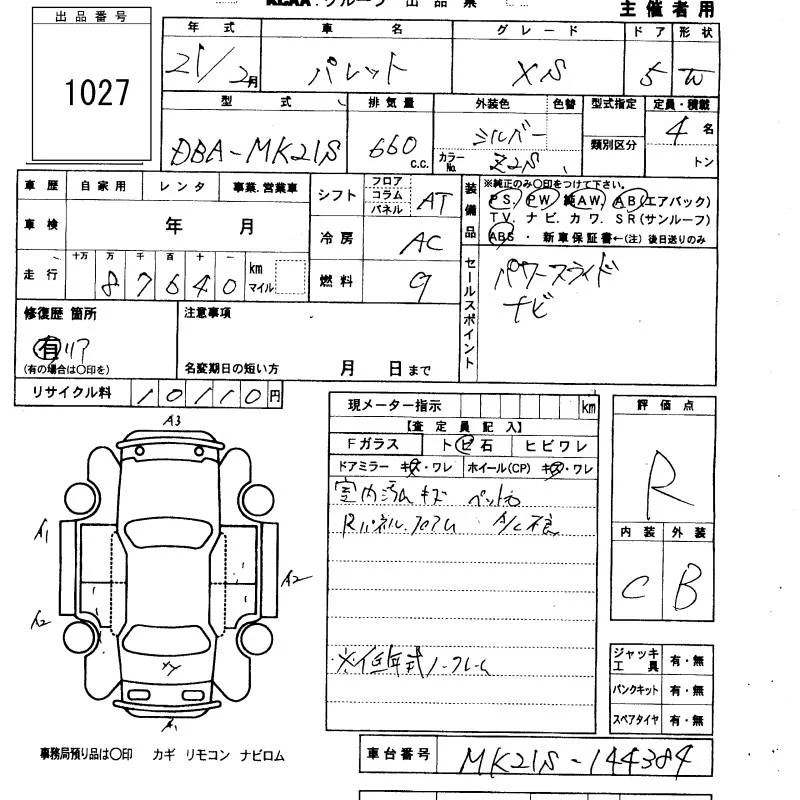 KCAA.グループ 出品票
主催者用
出品番号
1027
年式 車名 グレード ドア 形状
21/2月 パレット XS 5 W
型式 排気量 外装色 色替 型式指定 定員・積載
DBA-MK21S 660 c.c. シルバー カラーNo. Z2S 類別区分 4名
トン
車歴 自家用 レンタ 事業.営業車
車検 年 月
走行 十万 万 千 百 十 一 km マイル
87640
シフト フロア コラム パネル AT
冷房 AC
燃料 9
装備品
※純正のみ○印をつけて下さい。
PS. PW 純AW. AB(エアバック)
TV. ナビ. カワ. SR(サンルーフ)
ABS ・ 新車保証書←(注) 後日送りのみ
セールスポイント
パワースライド
ナビ
修復歴 箇所
有 リア
(有の場合は○印を)
注意事項
名変期日の短い方 月 日まで
リサイクル料 10110円
現メーター指示 km
【査定員記入】
Fガラス トビ石 ヒビワレ
ドアミラー キズ・ワレ ホイール(CP) キズ・ワレ
室内汚ム キズ
Rパネル.フロアム A/C不良
評価点
R
内装 外装
C B
A3
A1
A2
A2
A1
ジャッキ工具 有・無
パンクキット 有・無
スペアタイヤ 有・無
事務局預り品は○印 カギ リモコン ナビロム
車台番号 MK21S-144384